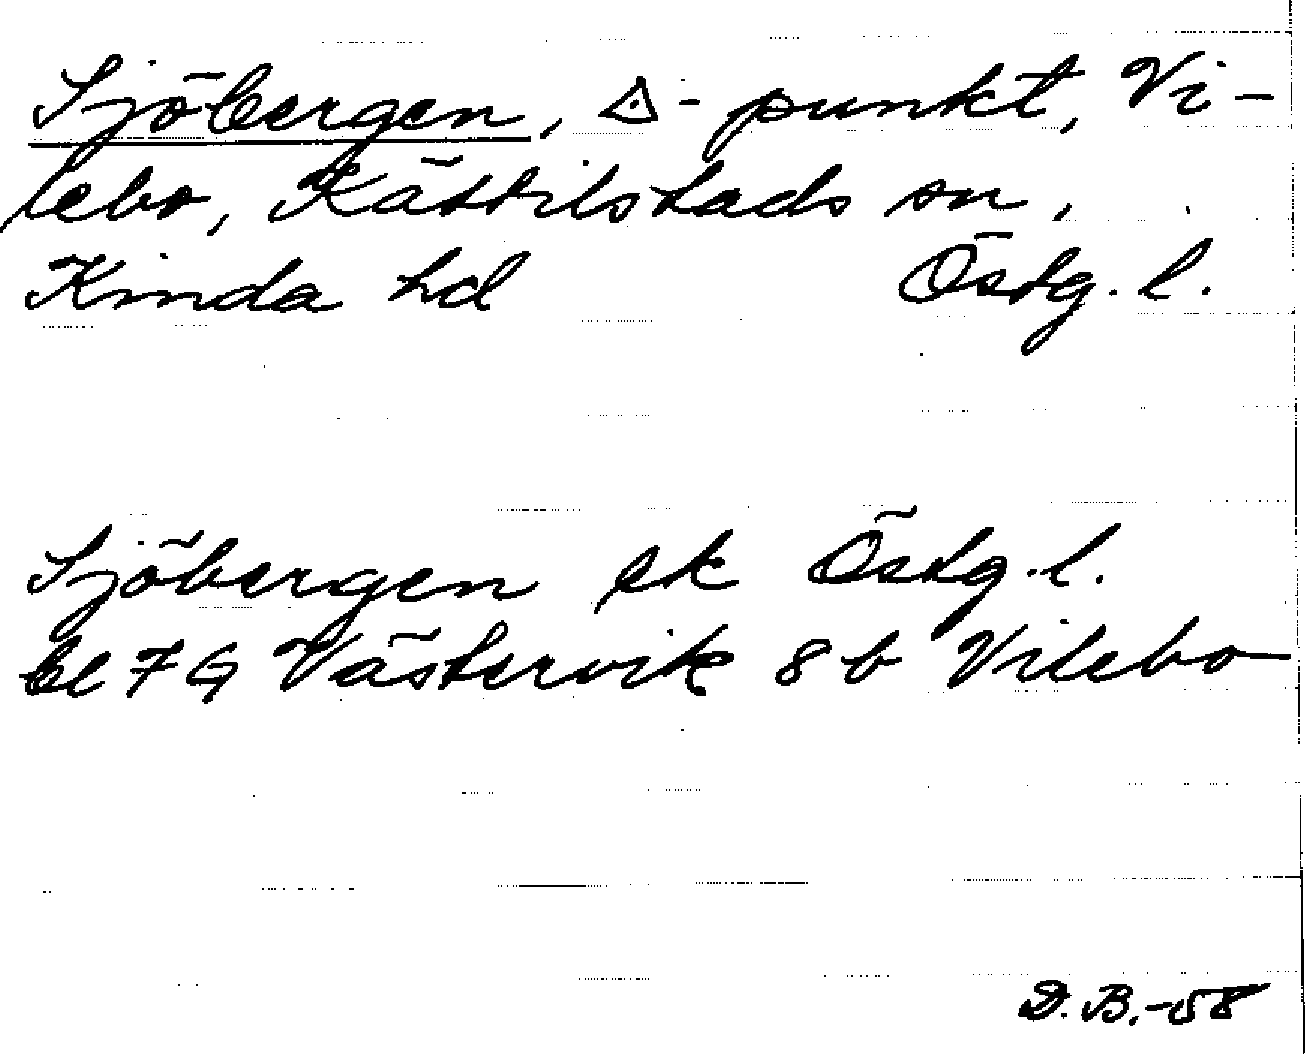 Sjöbergen, △-punkt, Vi-
lebo, Kättilstads sn,
Kinda hd Östg. l.
Sjöbergen ek Östg. l.
bl 7 G Västervik 8 b Vilebo
D. B. -58